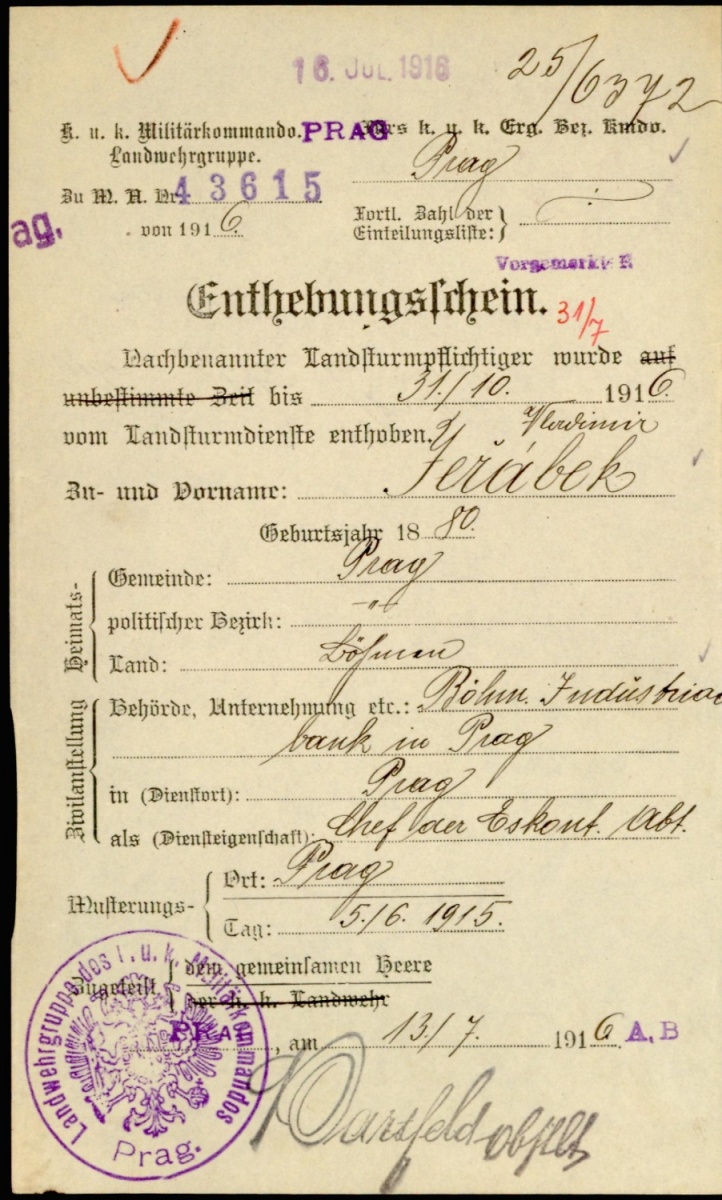 16. JUL. 1916
25/6372
K. u. k. Militärkommando. PRAG
Landwehrgruppe.
Fürs k. u. k. Erg. Bez. Kmdo.
Prag
Zu M. A. Nr. 43615
ag.
von 1916.
Fortl. Zahl der
Einteilungsliste:
Vorgemerkt R
Enthebungsschein.
31/7
Nachbenannter Landsturmpflichtiger wurde auf
unbestimmte Zeit bis 31./10. 1916.
vom Landsturmdienste enthoben.
Vladimir
Zu- und Vorname: Jeřábek
Geburtsjahr 1880.
Heimats-
Gemeinde: Prag
politischer Bezirk: -"-
Land: Böhmen
Zivilanstellung
Behörde, Unternehmung etc.: Böhm. Industrial
bank in Prag
in (Dienstort): Prag
als (Diensteigenschaft): Chef der Eskont. Abt.
Musterungs-
Ort: Prag
Tag: 5./6. 1915.
Zugeteilt
dem gemeinsamen Heere
der k. k. Landwehr
PRAG, am 13./7. 1916. A.B
Landwehrgruppe des k. u. k. Militärkommandos
Prag.